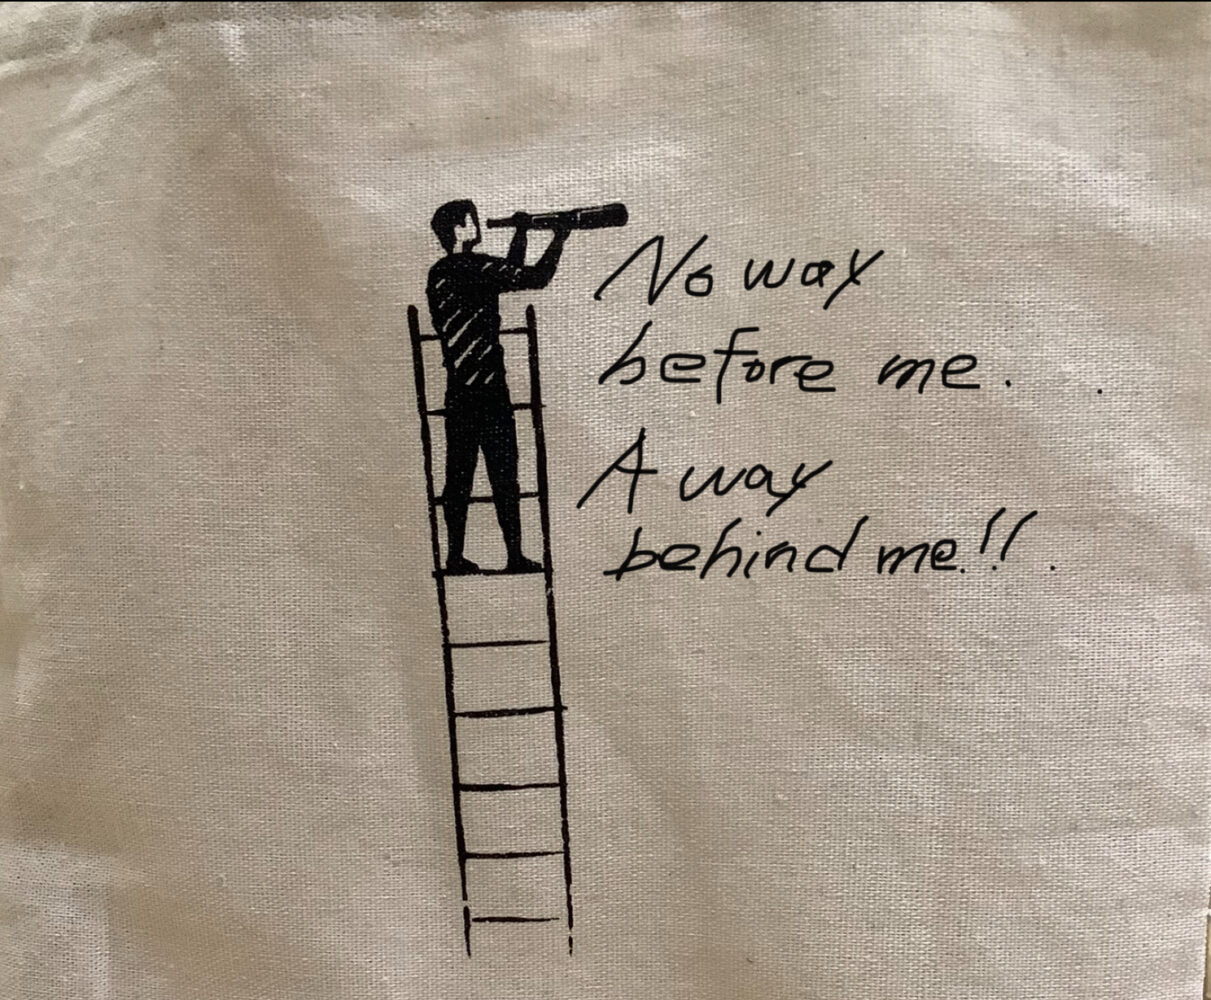 No way
before me.
A way
behind me.!!